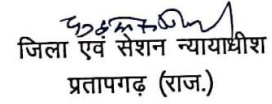 जिला एवं सेशन न्यायाधीश
प्रतापगढ़ (राज.)